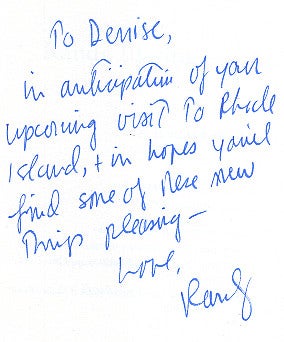 To Denise,
in anticipation of your
upcoming visit to Rhode
Island, + in hopes you'll
find some of these new
things pleasing—
Love,
Randy